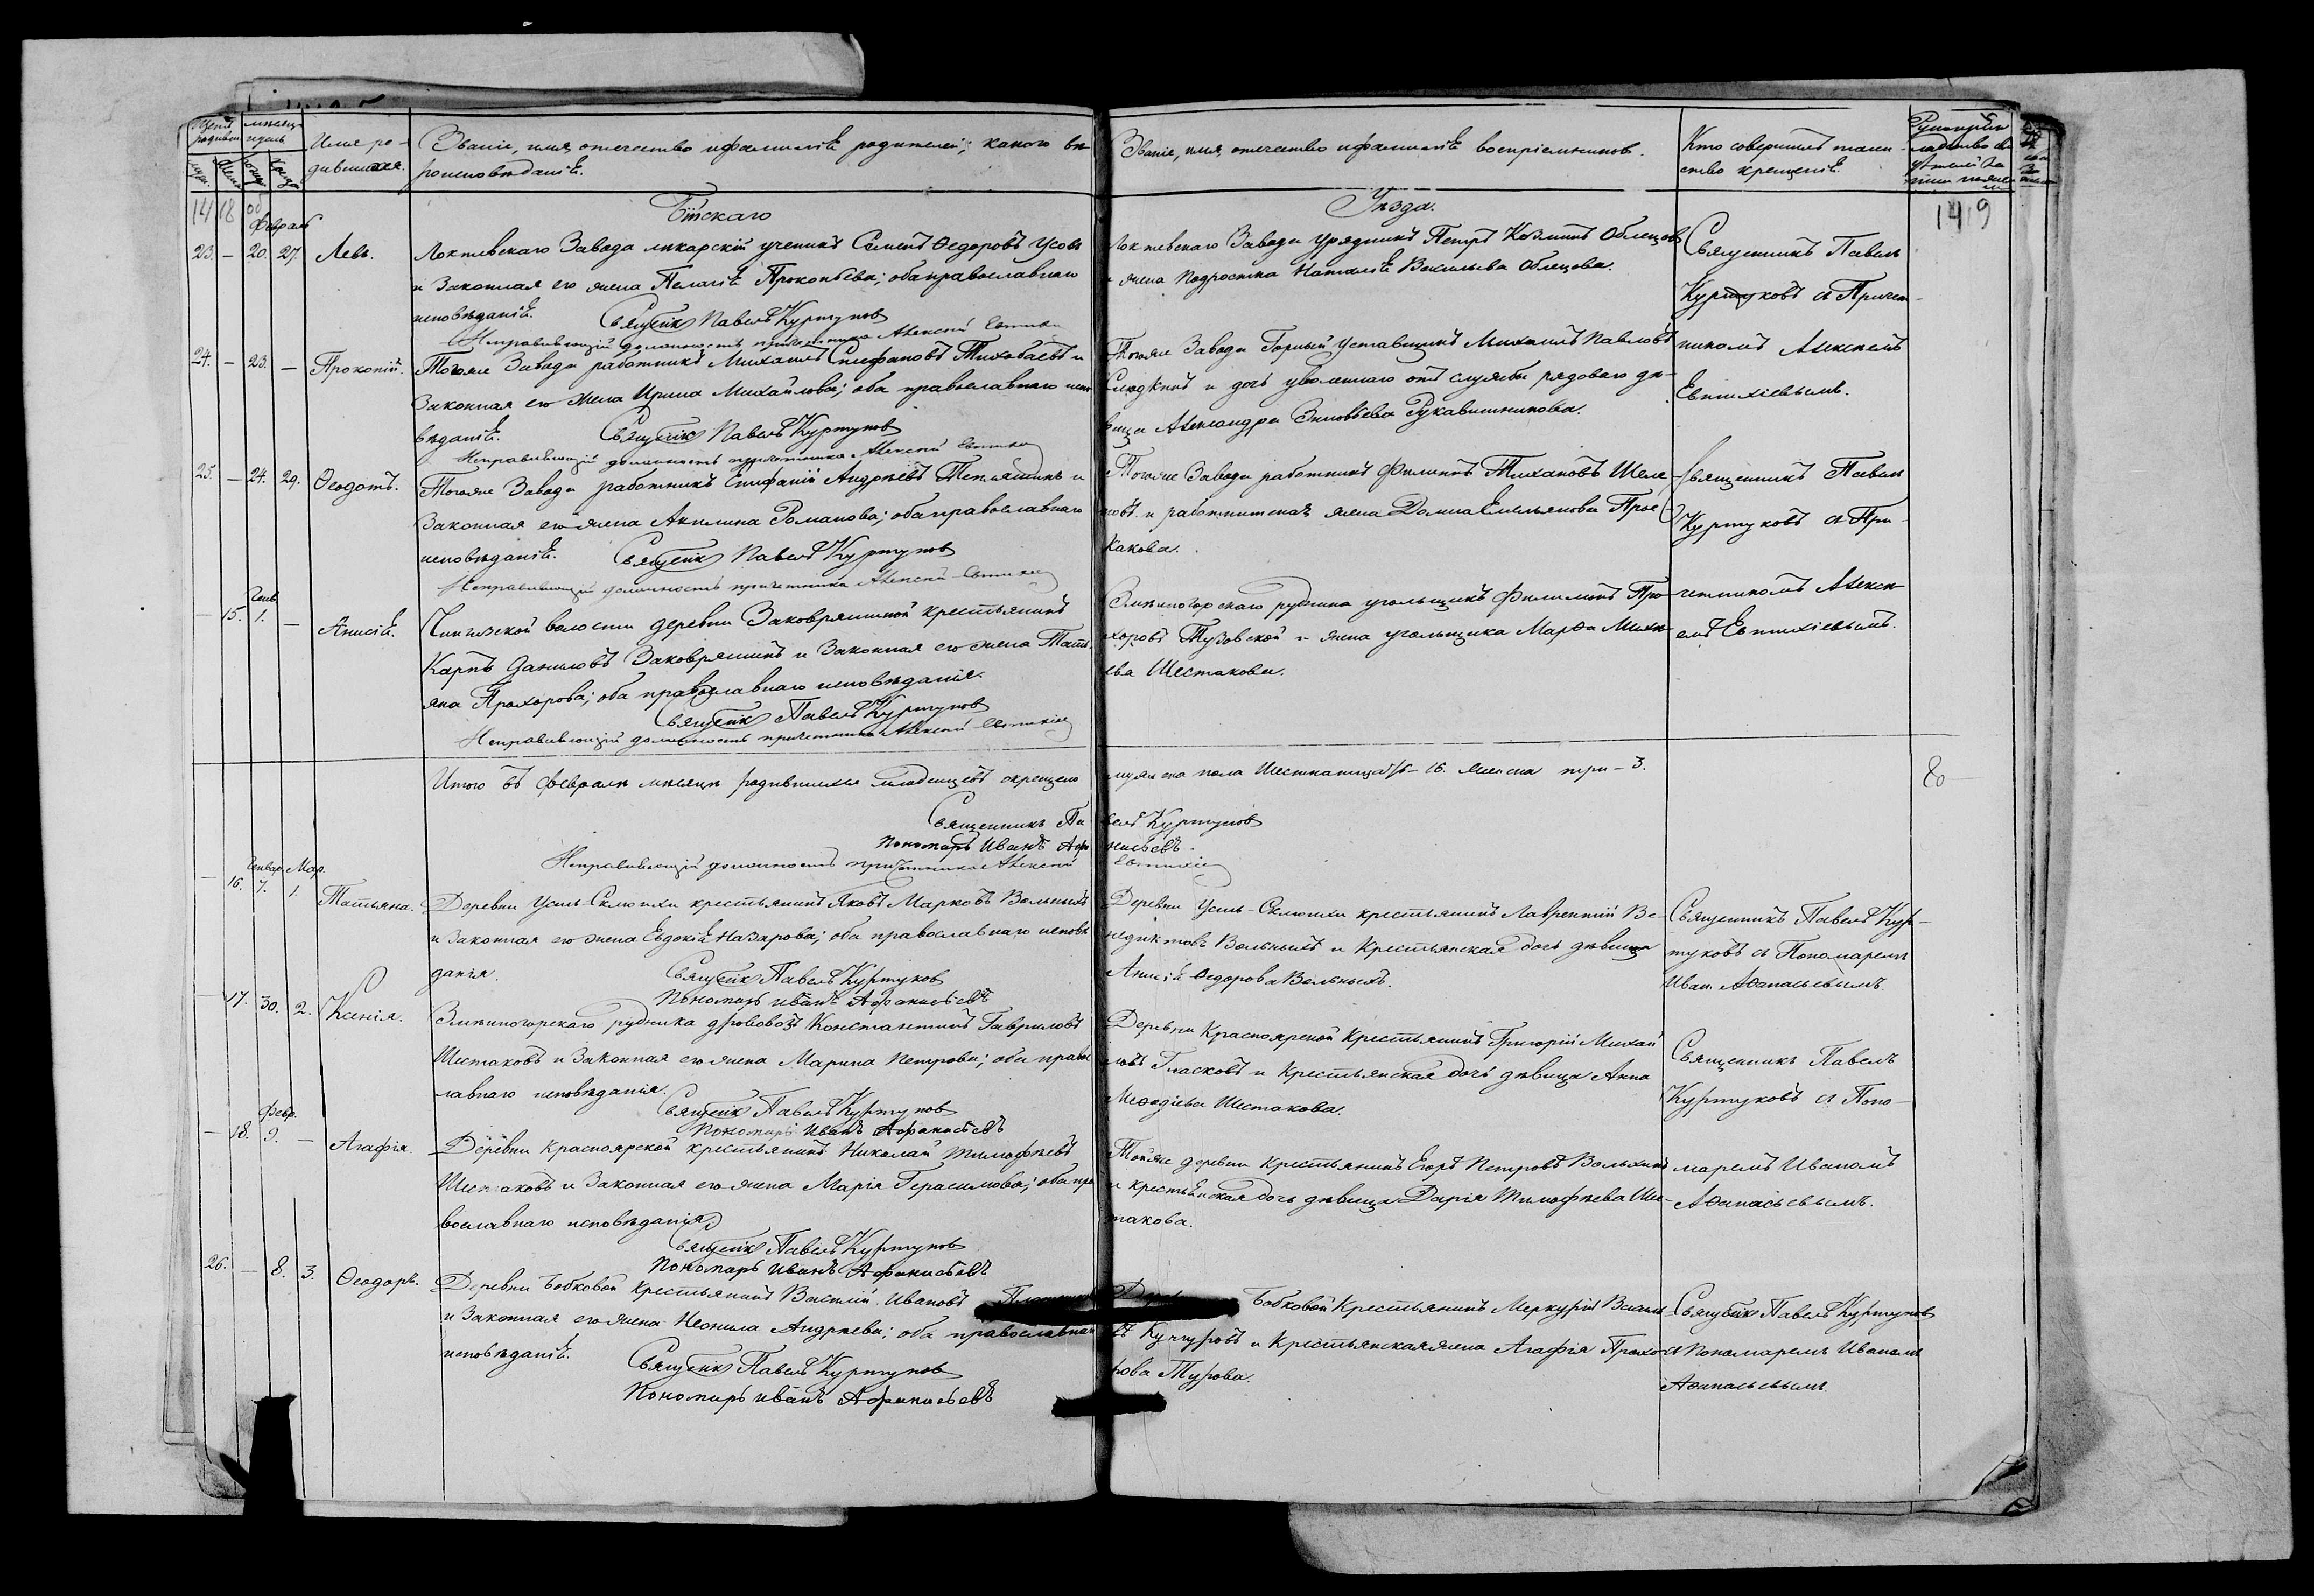 Имя ро-
дившихся.
Званіе, имя, отечество и фамилія родителей, и какого вѣ-
роисповѣданія.
Званіе, имя, отечество и фамилія воспріемниковъ.
Кто совершалъ таин-
ство крещенія.
1418 об
Бійскаго
Уѣзда.
1419
Февраль
23. — 20. 27. Левъ.
Локтевскаго Завода лѣкарскій ученикъ Семенъ Ѳедоровъ Усовъ
и Законная его жена Пелагія Прокопьева; оба православнаго
исповѣданія. Священикъ Павелъ Куртуков
Исправляющій должность причетника Алексей Евтихіев
Локтевскаго Завода урядникъ Петръ Козминъ Облецовъ
и жена подростка Наталія Васильева Облецова.
Священникъ Павелъ
Куртуковъ съ Причет-
24. — 23. — Прокопій.
Тогоже Завода работникъ Михаилъ Стефановъ и
Законная его жена Ирина Михайлова; оба православнаго испо-
вѣданія. Священикъ Павелъ Куртуков
Исправляющій должность причетника Алексей Евтихіев
Тогоже Завода Горный Уставщикъ Михаилъ Павловъ
и дочь уволеннаго отъ службы рядоваго дѣ-
вица Александра Зиновьева Рукавишникова.
никомъ Алексѣемъ
Евтихіевымъ.
25. — 24. 29. Ѳеодотъ.
Тогоже Завода работникъ Епифаній Андреевъ и
Законная его жена Акилина Романова; оба православнаго
исповѣданія. Священикъ Павелъ Куртуков
Исправляющій должность причетника Алексей Евтихіев
Тогоже Завода работникъ Филиппъ Тихановъ Шеле-
ховъ и работническая жена Домна Емельянова Прос-
какова.
Священникъ Павелъ
Куртуковъ съ При-
Генв
— 15. 1. — Анисія.
волости деревни Заковряшиной крестьянинъ
Карпъ Даниловъ Заковряшинъ и Законная его жена Тать-
яна Прохорова; оба православнаго исповѣданія.
Священикъ Павелъ Куртуков
Исправляющій должность причетника Алексей Евтихіев
Змѣиногорскаго рудника угольщикъ Филимонъ Про-
хоровъ Тузовской и жена угольщика Марѳа Михѣ-
ева Шестакова.
четникомъ Алексѣ-
емъ Евтихіевымъ.
Итого въ Февралѣ мѣсяцѣ родившихся младенцевъ окрещено
мужеска пола Шестнадцать – 16. Женска три – 3.
80
Священникъ Па
велъ Куртуков
Пономарь Иванъ Афа
насьевъ.
Исправляющій должность причетника Алексей
Евтихіев
Генвар. Мар.
— 16. 7. 1. Татьяна.
Деревни Усть-Склюихи крестьянинъ Яковъ Марковъ Вольныхъ
и Законная его жена Евдокія Назарова; оба православнаго исповѣ-
данія. Священикъ Павелъ Куртуков
Пономарь Иванъ Афанасьевъ
Деревни Усть-Склюихи крестьянинъ Лаврентій Ве-
недиктовъ Вольныхъ и Крестьянская дочь дѣвица
Анисія Ѳедорова Вольныхъ.
Священникъ Павелъ Кур-
туковъ съ Пономаремъ
Иван. Аѳанасьевымъ.
— 17. 30. 2. Ксенія.
Змѣиногорскаго рудника дрововозъ Константинъ Гавриловъ
Шестаковъ и Законная его жена Марина Петрова; оба правос-
лавнаго исповѣданія. Священикъ Павелъ Куртуков
Пономарь Иванъ Афанасьевъ
Деревни Красноярской Крестьянинъ Григорій Михай-
ловъ Гласковъ и Крестьянская дочь дѣвица Анна
Меѳодіева Шестакова.
Священникъ Павелъ
Куртуковъ съ Поно-
Февр.
— 18. 9. — Агафія.
Деревни Красноярской крестьянинъ Николай Тимофѣевъ
Шестаковъ и Законная его жена Марія Герасимова; оба пра-
вославнаго исповѣданія.
Священикъ Павелъ Куртуков
Пономарь Иванъ Афанасьевъ
Тойже деревни Крестьянинъ Егоръ Петровъ
и крестьянская дочь дѣвица Дарія Тимофѣева Шес-
такова.
маремъ Иваномъ
Аѳанасьевымъ.
26. — 8. 3. Ѳеодоръ.
Деревни Бобковой Крестьянинъ Василій Ивановъ
и Законная его жена Неонила Андреева; оба православнаго
исповѣданія. Священикъ Павелъ Куртуков
Пономарь Иванъ Афанасьевъ
Бобковой Крестьянинъ Меркурій Василь-
въ Кучуровъ и Крестьянская жена Агафія Прохо-
рова Турова.
Священикъ Павелъ Куртуков
съ Пономаремъ Иваномъ
Аѳанасьевымъ.